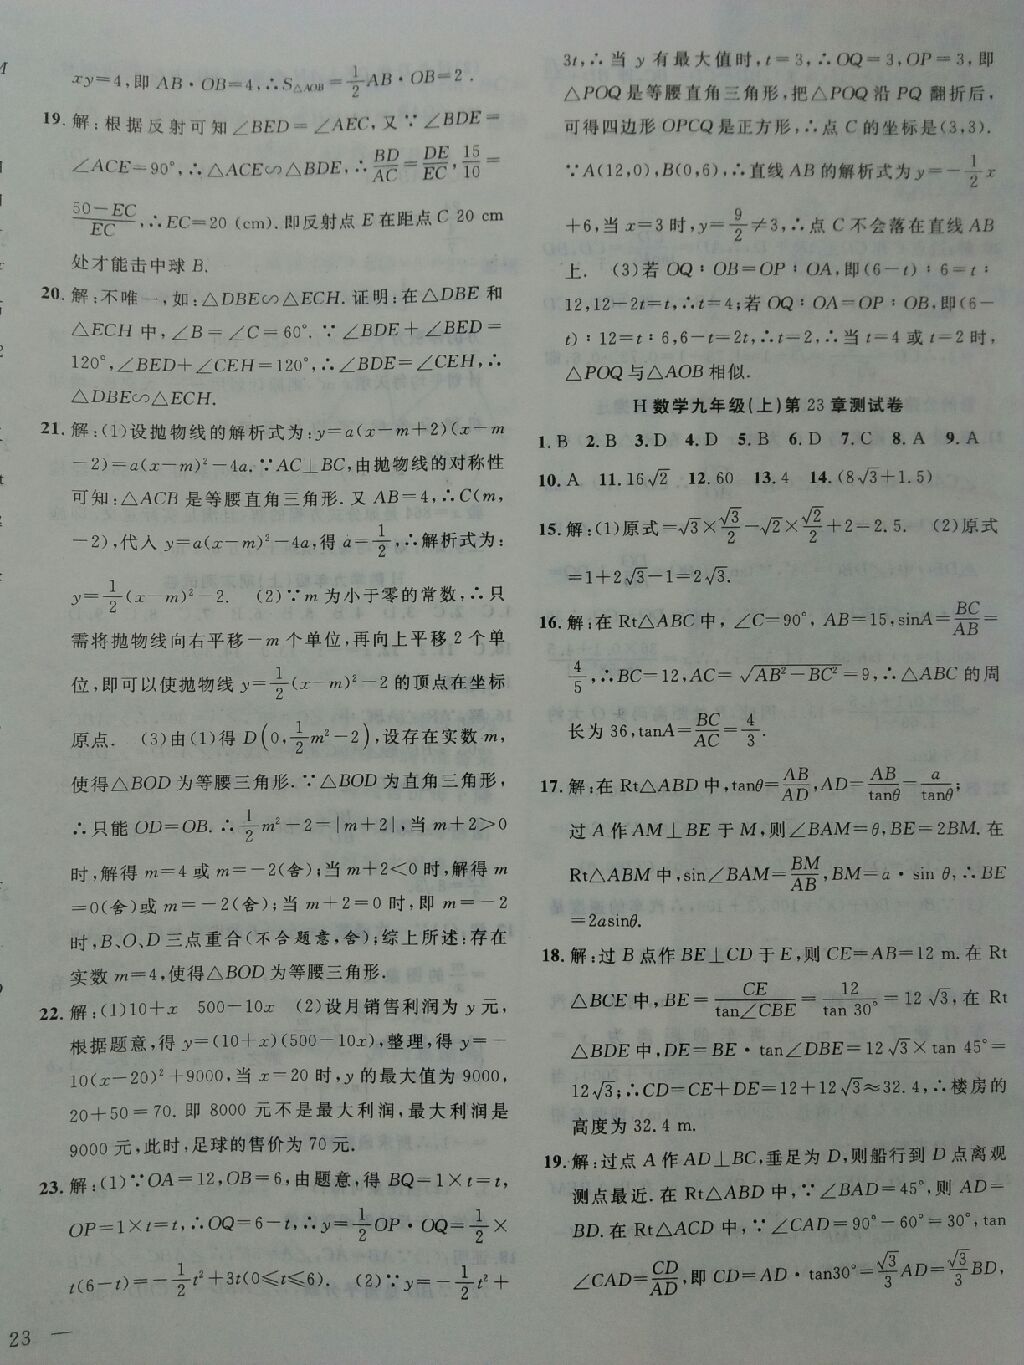 xy=4,即 AB·OB=4,∴S△AOB=1/2AB·OB=2.
19.解:根据反射可知∠BED=∠AEC,又∵∠BDE=
∠ACE=90°,∴△ACE∽△BDE,∴BD/AC=DE/EC,15/10=
50-EC/EC,∴EC=20 (cm).即反射点 E 在距点 C 20 cm
处才能击中球 B.
20.解:不唯一,如:△DBE∽△ECH.证明:在△DBE 和
△ECH 中,∠B=∠C=60°.∵∠BDE+∠BED=
120°,∠BED+∠CEH=120°,∴∠BDE=∠CEH,∴
△DBE∽△ECH.
21.解:(1)设抛物线的解析式为:y=a(x-m+2)(x-m
-2)=a(x-m)²-4a.∵AC⊥BC,由抛物线的对称性
可知:△ACB 是等腰直角三角形.又 AB=4,∴C(m,
-2),代入 y=a(x-m)²-4a,得 a=1/2,∴解析式为:
y=1/2(x-m)²-2. (2)∵m 为小于零的常数,∴只
需将抛物线向右平移-m 个单位,再向上平移 2 个单
位,即可以使抛物线 y=1/2(x-m)²-2 的顶点在坐标
原点. (3)由(1)得 D(0,1/2m²-2),设存在实数 m,
使得△BOD 为等腰三角形.∵△BOD 为直角三角形,
∴只能 OD=OB.∴1/2m²-2=|m+2|,当 m+2>0
时,解得 m=4 或 m=-2(舍);当 m+2<0 时,解得 m
=0(舍)或 m=-2(舍);当 m+2=0 时,即 m=-2
时,B、O、D 三点重合(不合题意,舍);综上所述:存在
实数 m=4,使得△BOD 为等腰三角形.
22.解:(1)10+x 500-10x (2)设月销售利润为 y 元,
根据题意,得 y=(10+x)(500-10x),整理,得 y=-
10(x-20)²+9000,当 x=20 时,y 的最大值为 9000,
20+50=70.即 8000 元不是最大利润,最大利润是
9000 元,此时,足球的售价为 70 元.
23.解:(1)∵OA=12,OB=6,由题意,得 BQ=1×t=t,
OP=1×t=t,∴OQ=6-t,∴y=1/2OP·OQ=1/2×
t(6-t)=-1/2t²+3t(0≤t≤6). (2)∵y=-1/2t²+
23
3t,∴当 y 有最大值时,t=3,∴OQ=3,OP=3,即
△POQ 是等腰直角三角形,把△POQ 沿 PQ 翻折后,
可得四边形 OPCQ 是正方形,∴点 C 的坐标是(3,3).
∵A(12,0),B(0,6),∴直线 AB 的解析式为 y=-1/2x
+6,当 x=3 时,y=9/2≠3,∴点 C 不会落在直线 AB
上. (3)若 OQ∶OB=OP∶OA,即(6-t)∶6=t∶
12,12-2t=t,∴t=4;若 OQ∶OA=OP∶OB,即(6-
t)∶12=t∶6,6-t=2t,∴t=2,∴当 t=4 或 t=2 时,
△POQ 与△AOB 相似.
H 数学九年级(上)第 23 章测试卷
1.B 2.B 3.D 4.D 5.B 6.D 7.C 8.A 9.A
10.A 11.16√2 12.60 13.4 14.(8√3+1.5)
15.解:(1)原式=√3×√3/2-√2×√2/2+2=2.5. (2)原式
=1+2√3-1=2√3.
16.解:在 Rt△ABC 中,∠C=90°, AB=15,sinA=BC/AB=
4/5,∴BC=12,AC=√(AB²-BC²)=9,∴△ABC 的周
长为 36,tanA=BC/AC=4/3.
17.解:在 Rt△ABD 中,tanθ=AB/AD,AD=AB/tanθ=a/tanθ;
过 A 作 AM⊥BE 于 M,则∠BAM=θ,BE=2BM.在
Rt△ABM 中,sin∠BAM=BM/AB,BM=a·sin θ,∴BE
=2asinθ.
18.解:过 B 点作 BE⊥CD 于 E,则 CE=AB=12 m.在 Rt
△BCE 中,BE=CE/tan∠CBE=12/tan 30°=12√3,在 Rt
△BDE 中,DE=BE·tan∠DBE=12√3×tan 45°=
12√3;∴CD=CE+DE=12+12√3≈32.4,∴楼房的
高度为 32.4 m.
19.解:过点 A 作 AD⊥BC,垂足为 D,则船行到 D 点离观
测点最近.在 Rt△ABD 中,∵∠BAD=45°,则 AD=
BD.在 Rt△ACD 中,∵∠CAD=90°-60°=30°,tan
∠CAD=CD/AD,即 CD=AD·tan30°=√3/3AD=√3/3BD,